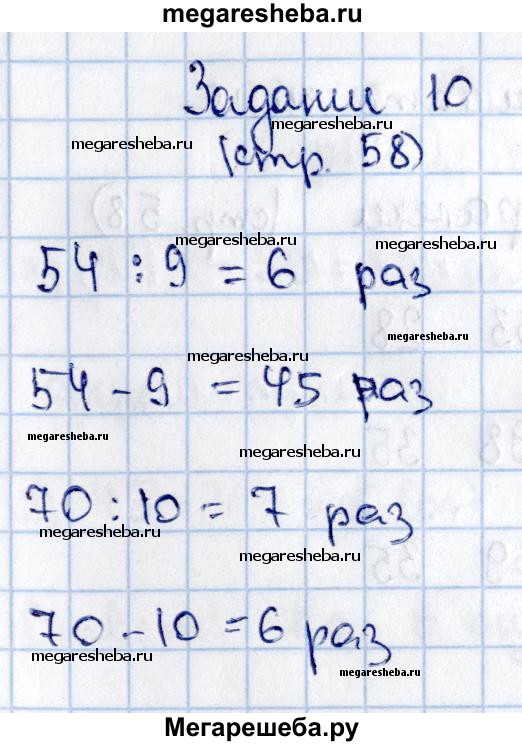 megaresheba.ru
Задании 10
megaresheba.ru
megaresheba.ru
(стр. 58)
megaresheba.ru
megaresheba.ru
54 : 9 = 6 раз
megaresheba.ru
megaresheba.ru
54 - 9 = 45 раз
megaresheba.ru
megaresheba.ru
70 : 10 = 7 раз
megaresheba.ru
megaresheba.ru
70 - 10 = 6 раз
megaresheba.ru
megaresheba.ru
Мегарешеба.ру